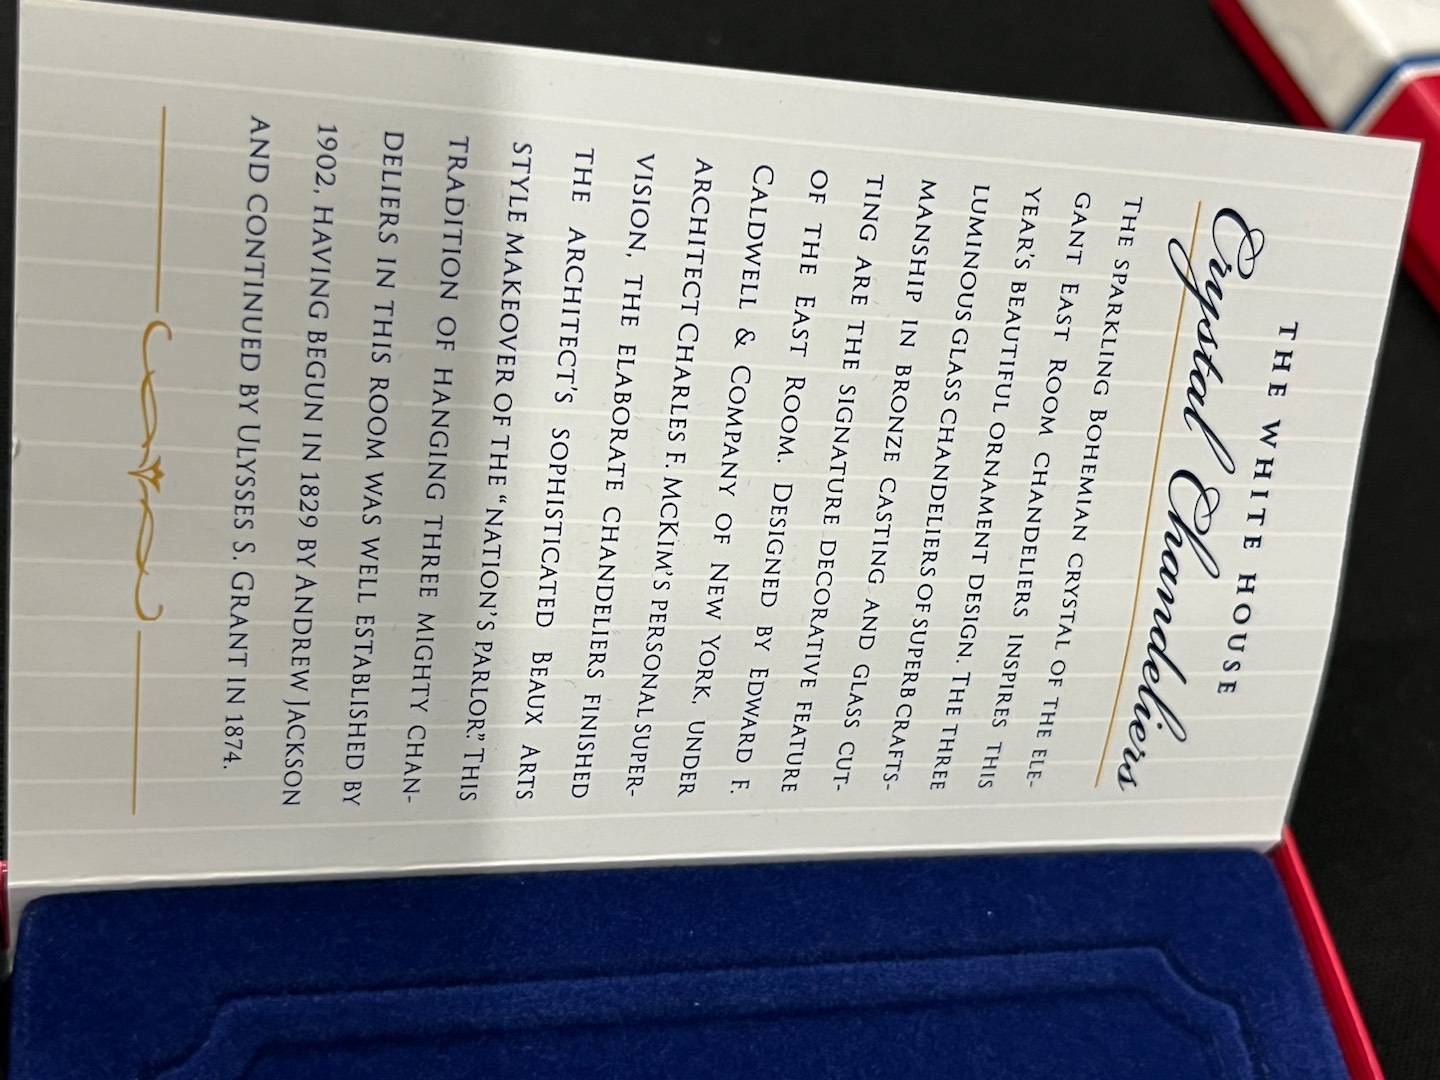 THE WHITE HOUSE
Crystal Chandeliers
THE SPARKLING BOHEMIAN CRYSTAL OF THE ELE-
GANT EAST ROOM CHANDELIERS INSPIRES THIS
YEAR'S BEAUTIFUL ORNAMENT DESIGN. THE THREE
LUMINOUS GLASS CHANDELIERS OF SUPERB CRAFTS-
MANSHIP IN BRONZE CASTING AND GLASS CUT-
TING ARE THE SIGNATURE DECORATIVE FEATURE
OF THE EAST ROOM. DESIGNED BY EDWARD F.
CALDWELL & COMPANY OF NEW YORK, UNDER
ARCHITECT CHARLES F. MCKIM'S PERSONAL SUPER-
VISION, THE ELABORATE CHANDELIERS FINISHED
THE ARCHITECT'S SOPHISTICATED BEAUX ARTS
STYLE MAKEOVER OF THE “NATION'S PARLOR.” THIS
TRADITION OF HANGING THREE MIGHTY CHAN-
DELIERS IN THIS ROOM WAS WELL ESTABLISHED BY
1902, HAVING BEGUN IN 1829 BY ANDREW JACKSON
AND CONTINUED BY ULYSSES S. GRANT IN 1874.